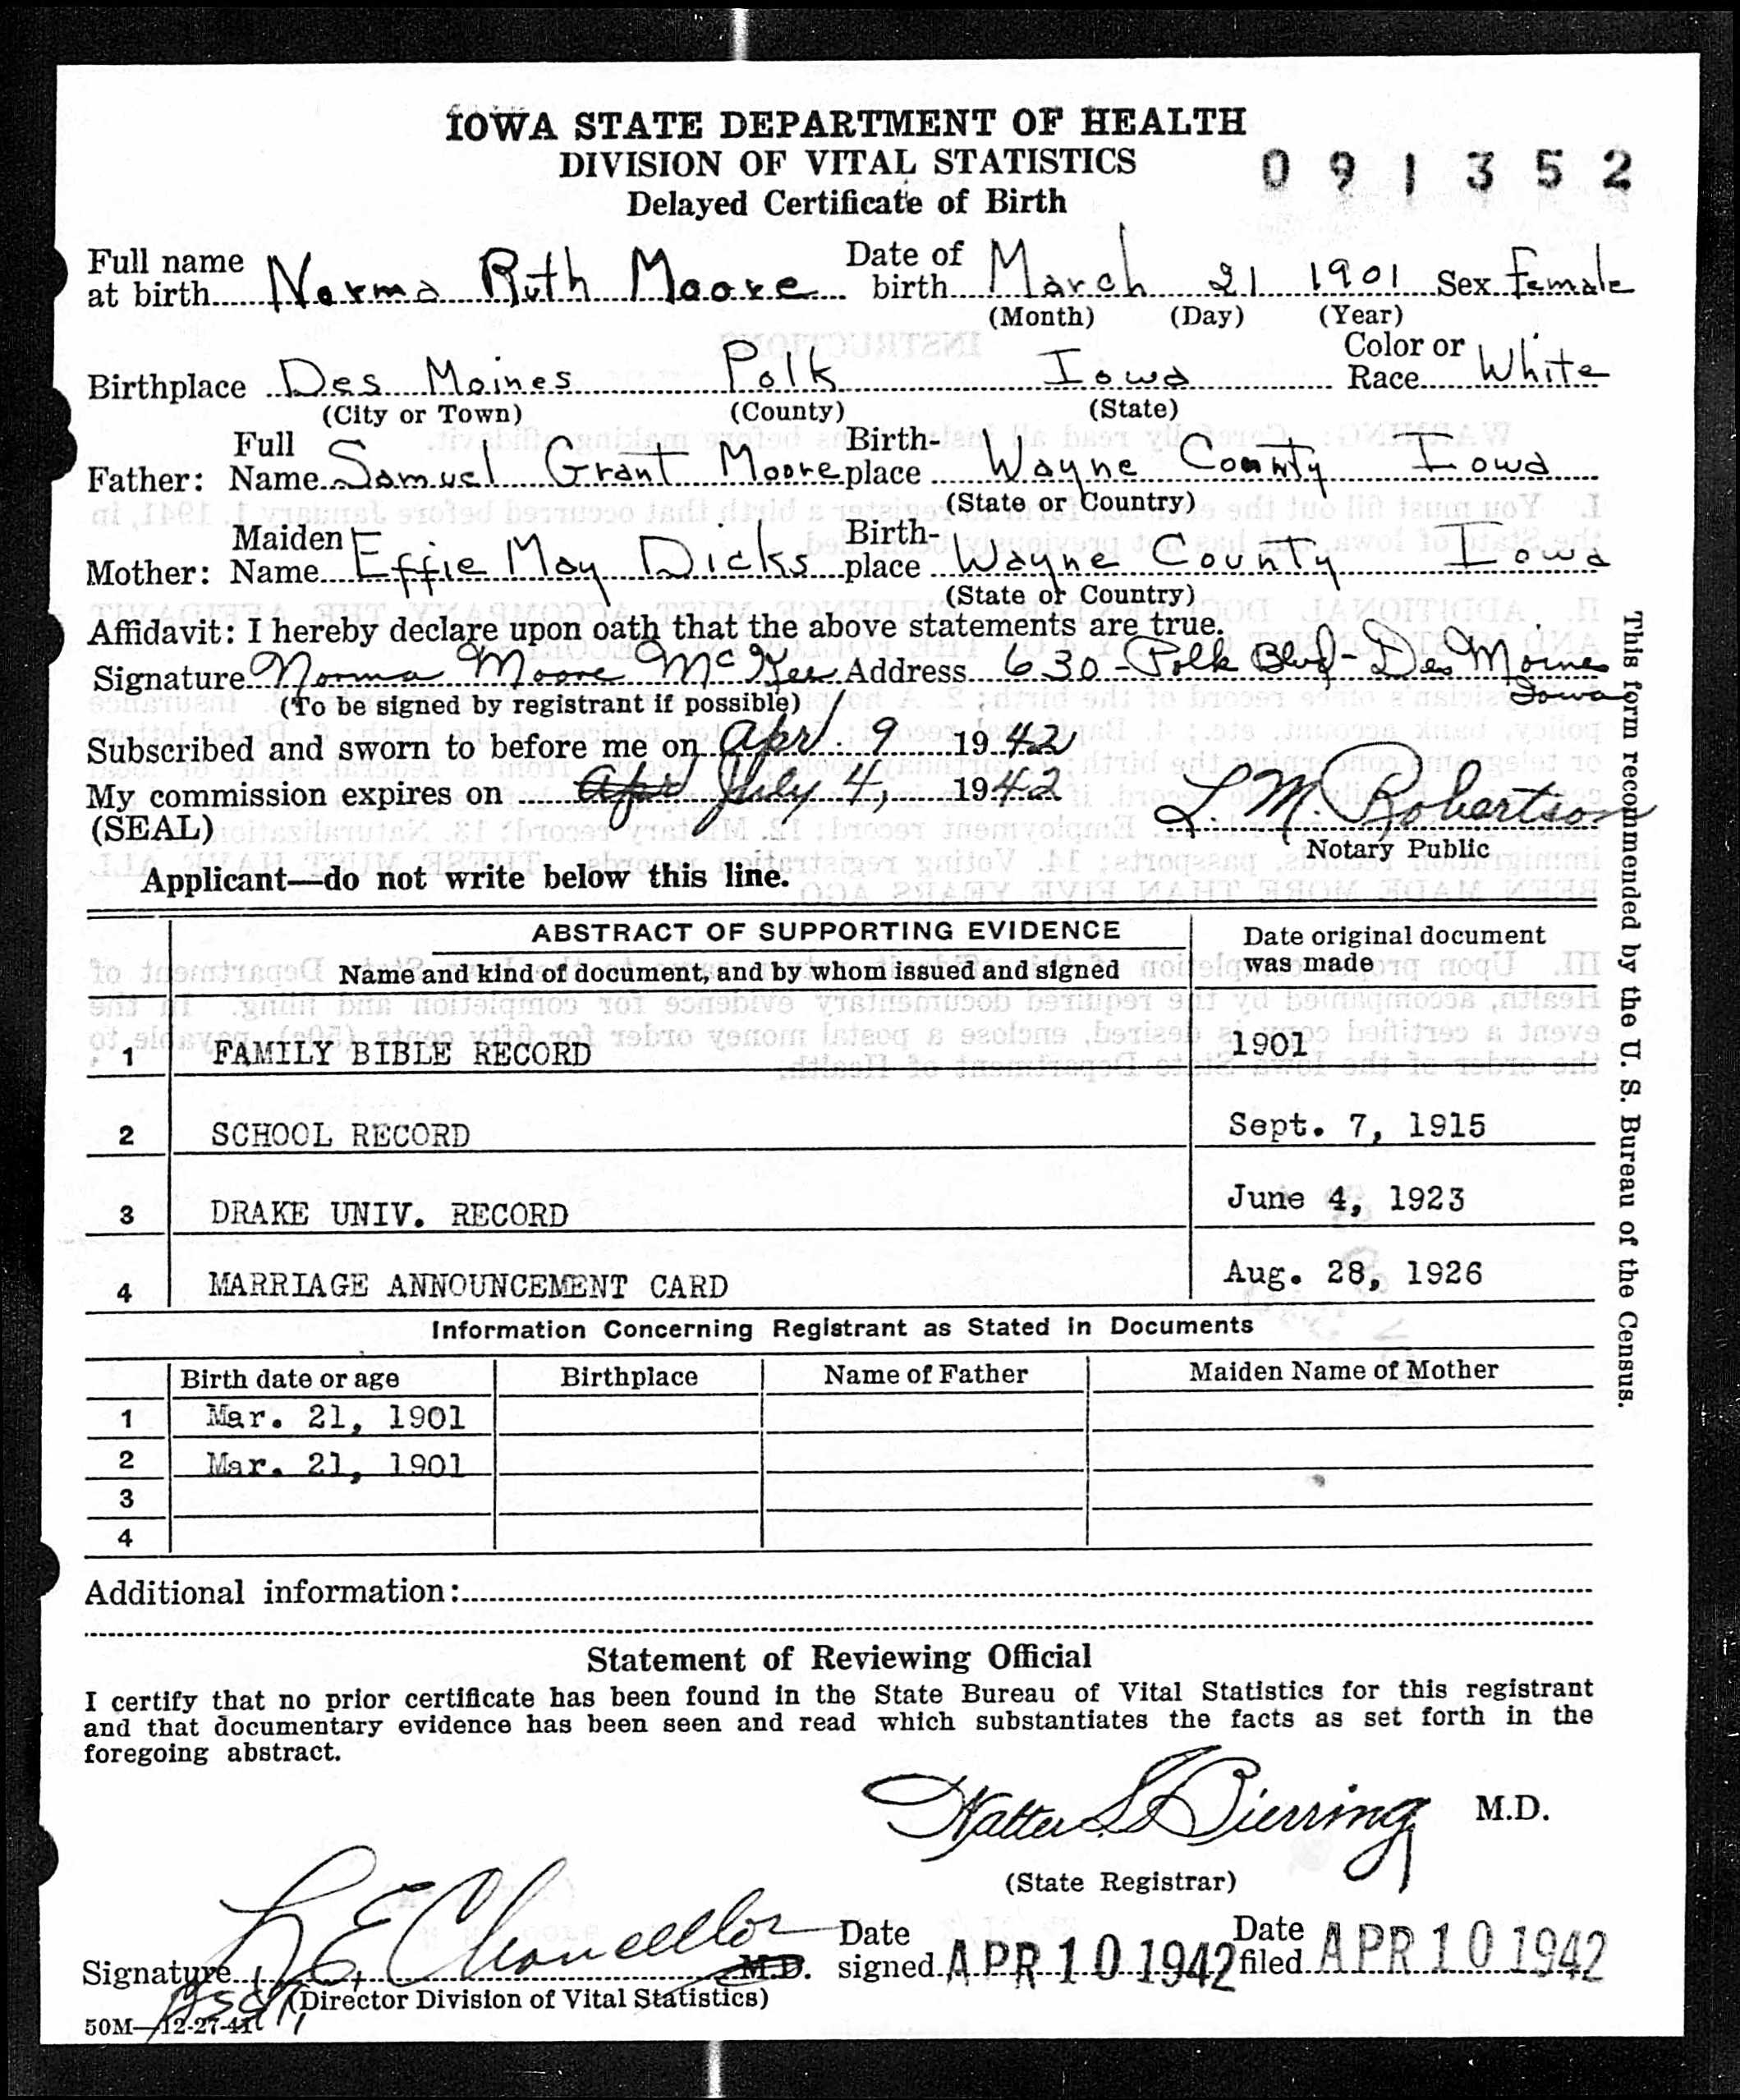 IOWA STATE DEPARTMENT OF HEALTH
DIVISION OF VITAL STATISTICS
091352
Delayed Certificate of Birth
Full name at birth Norma Ruth Moore Date of birth March 21 1901 Sex Female
(Month) (Day) (Year)
Birthplace Des Moines Polk Iowa Color or Race White
(City or Town) (County) (State)
Father: Full Name Samuel Grant Moore Birth-place Wayne County Iowa
(State or Country)
Mother: Maiden Name Effie May Dicks Birth-place Wayne County Iowa
(State or Country)
Affidavit: I hereby declare upon oath that the above statements are true.
Signature Norma Moore McKee Address 630 - Polk Blvd - Des Moines Iowa
(To be signed by registrant if possible)
Subscribed and sworn to before me on Apr. 9 1942
My commission expires on Apr July 4, 1942
(SEAL)
L. M. Robertson
Notary Public
Applicant—do not write below this line.
ABSTRACT OF SUPPORTING EVIDENCE
Name and kind of document, and by whom issued and signed
Date original document was made
1 FAMILY BIBLE RECORD 1901
2 SCHOOL RECORD Sept. 7, 1915
3 DRAKE UNIV. RECORD June 4, 1923
4 MARRIAGE ANNOUNCEMENT CARD Aug. 28, 1926
Information Concerning Registrant as Stated in Documents
Birth date or age Birthplace Name of Father Maiden Name of Mother
1 Mar. 21, 1901
2 Mar. 21, 1901
3
4
Additional information:
Statement of Reviewing Official
I certify that no prior certificate has been found in the State Bureau of Vital Statistics for this registrant
and that documentary evidence has been seen and read which substantiates the facts as set forth in the
foregoing abstract.
Walter L Bierring M.D.
(State Registrar)
Signature L E Chancellor M.D. Date signed APR 10 1942 Date filed APR 10 1942
(Director Division of Vital Statistics)
50M—12-27-41
This form recommended by the U. S. Bureau of the Census.